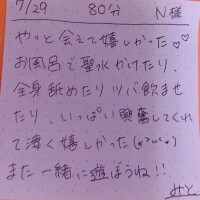 7/29 80分 N様
やっと会えて嬉しかった♡♡
お風呂で聖水かけたり、
全身舐めたりツバ飲ませ
たり、いっぱい興奮してくれ
て凄く嬉しかった(*>ω<*)
また一緒に遊ぼうね!!
みと